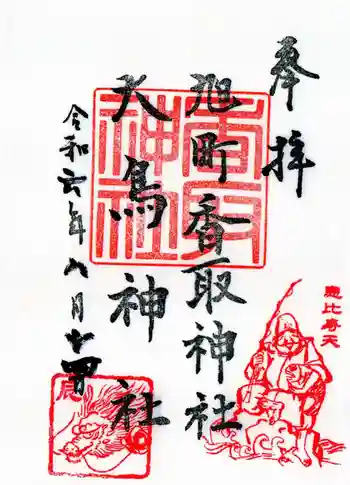 奉拝
旭町香取神社
大鳥神社
令和六年八月十四日
香取神社
恵比寿天
辰